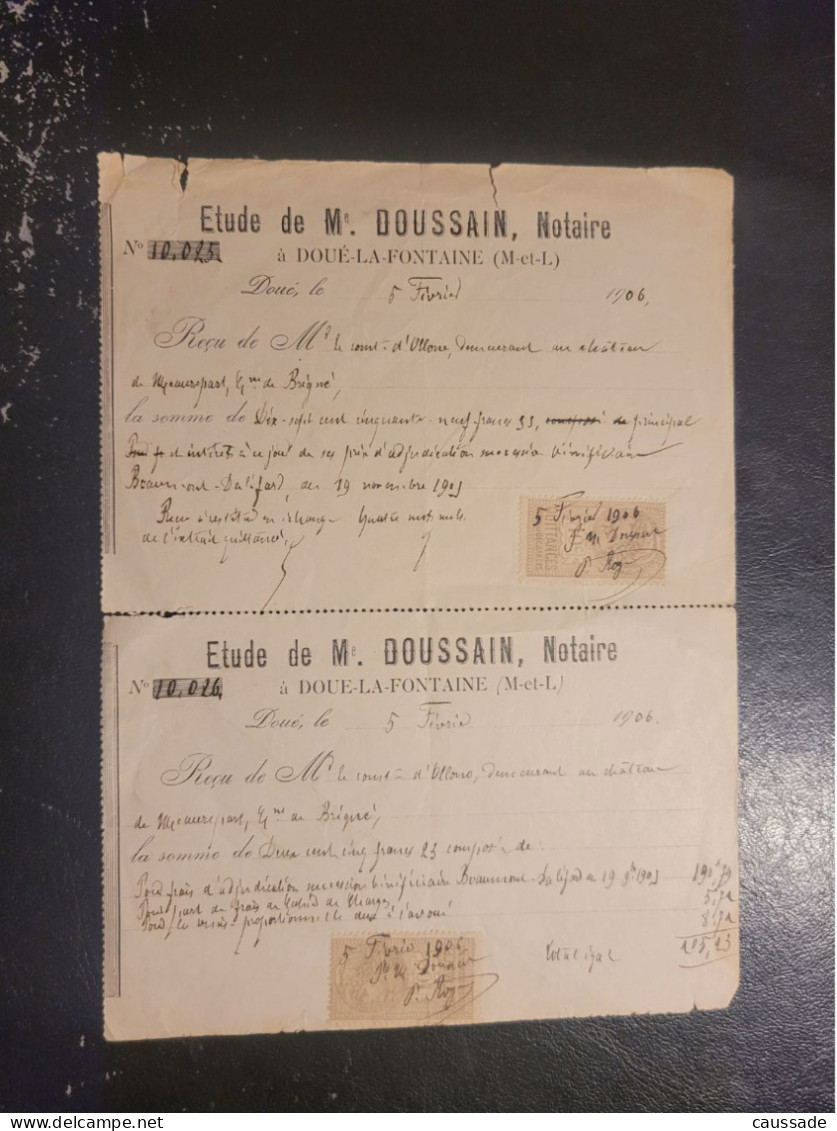 Etude de Me. DOUSSAIN, Notaire
No 10,025
à DOUÉ-LA-FONTAINE (M-et-L)
Doué, le 5 Février 1906,
Reçu de Mr le comte d'Ollone, demeurant au château
de Maurepart, Cne de Brigné,
la somme de Dix-sept cent cinquante-neuf francs 55, principal
et intérêts à ce jour de ses prix d'adjudication succession bénéficiaire
Beaumont-Dalifard, du 19 novembre 1905
Reçu à restituer en échange Quatre mots nuls
de l'extrait quittancé,
QUITTANCES
5 Février 1906
Doussain
Etude de Me. DOUSSAIN, Notaire
No 10,026
à DOUE-LA-FONTAINE (M-et-L)
Doué, le 5 Février 1906.
Reçu de Mr le comte d'Ollone, demeurant au château
de Maurepart, Cne de Brigné,
la somme de Deux cent cinq francs 23 composée de:
Pour frais d'adjudication succession bénéficiaire Beaumont-Dalifard du 19 9bre 1905 190,79
Pour part de frais de Cahier de Charges 5,72
Pour le remise proportionnelle due à l'avoué 8,72
Total égal 205,23
5 Février 1906
Doussain
caussade